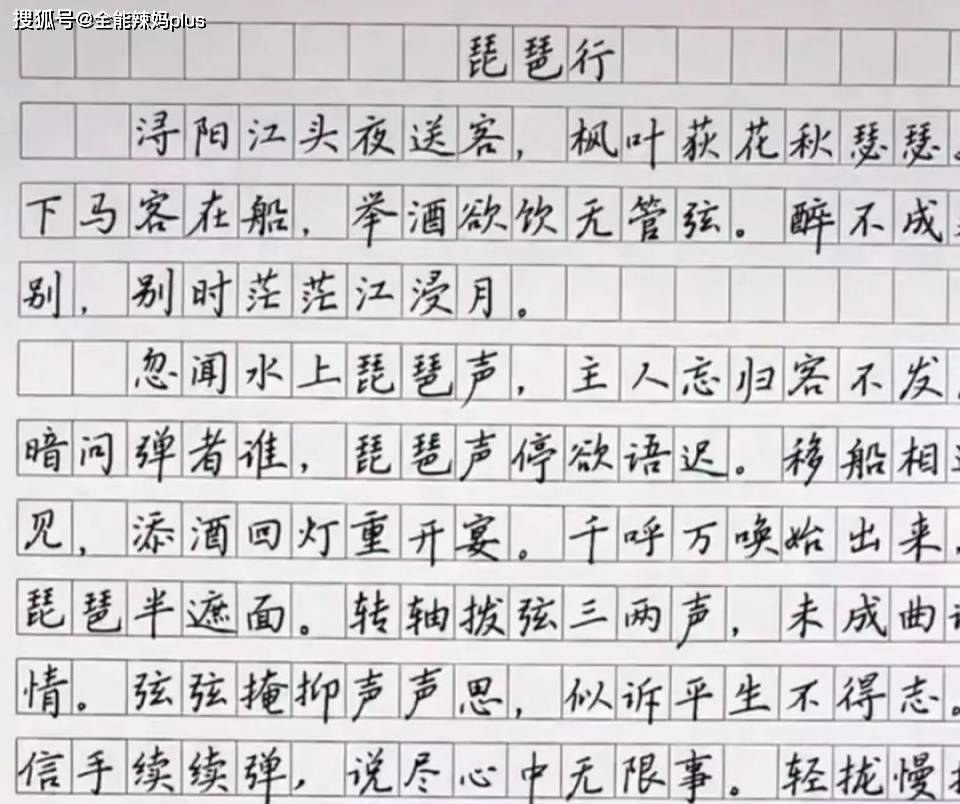 搜狐号@全能辣妈plus
琵琶行
浔阳江头夜送客，枫叶荻花秋瑟瑟。
下马客在船，举酒欲饮无管弦。醉不成
别，别时茫茫江浸月。
忽闻水上琵琶声，主人忘归客不发
暗问弹者谁，琵琶声停欲语迟。移船相
见，添酒回灯重开宴。千呼万唤始出来，
琵琶半遮面。转轴拨弦三两声，未成曲
情。弦弦掩抑声声思，似诉平生不得志。
信手续续弹，说尽心中无限事。轻拢慢